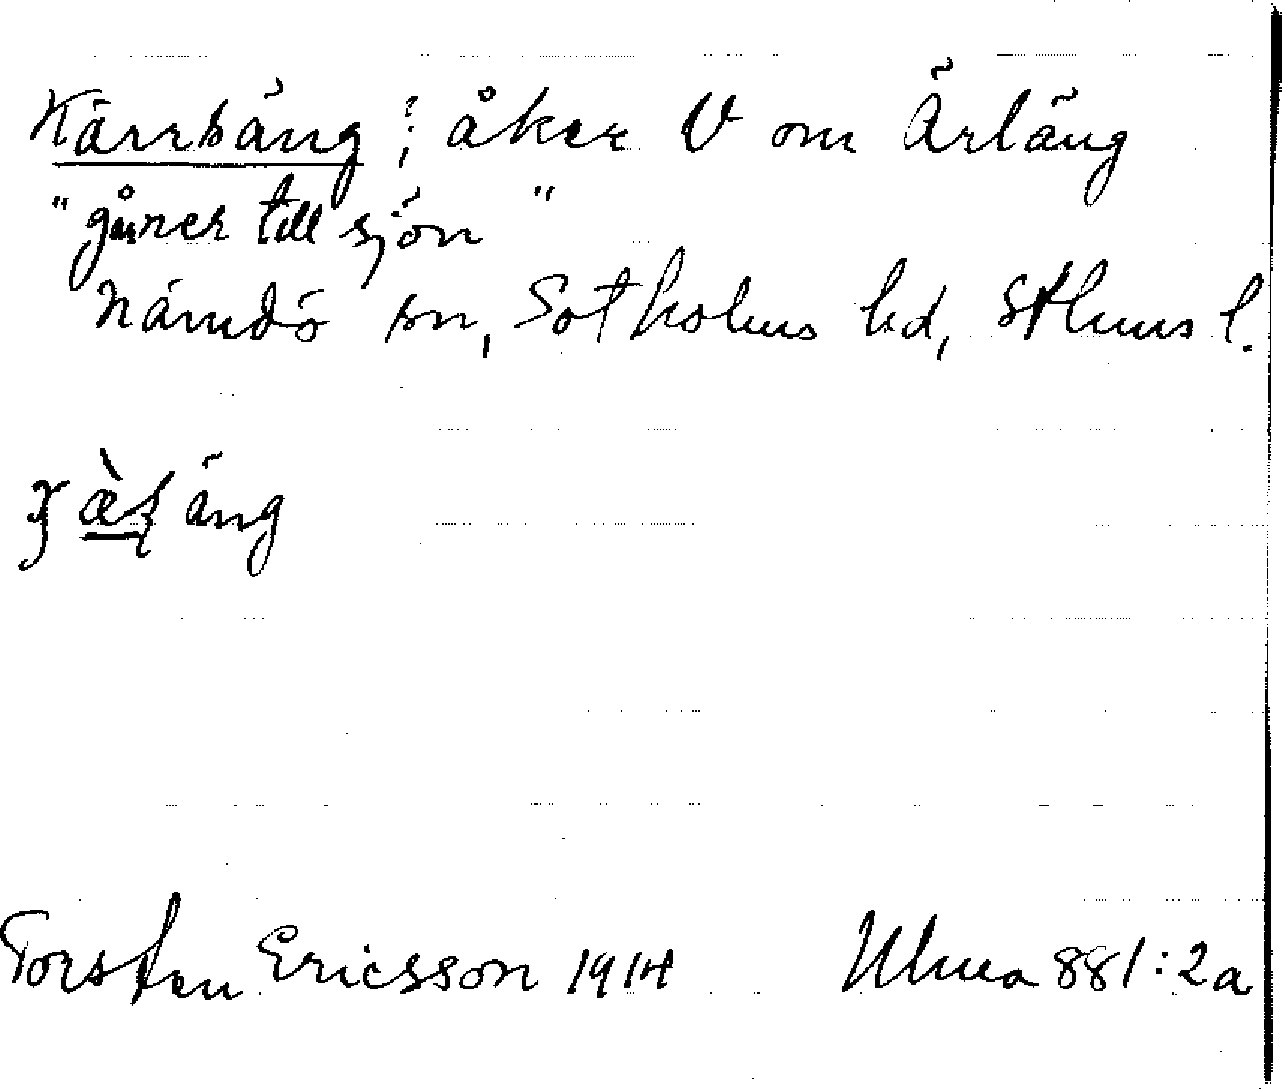 Kärräng ; åker V om Ärläng
"gåner till sjön"
Nämdö sn, Sotholms hd, Sthlms l.
äng
Torsten Ericsson 1914 Ulma 881:2a